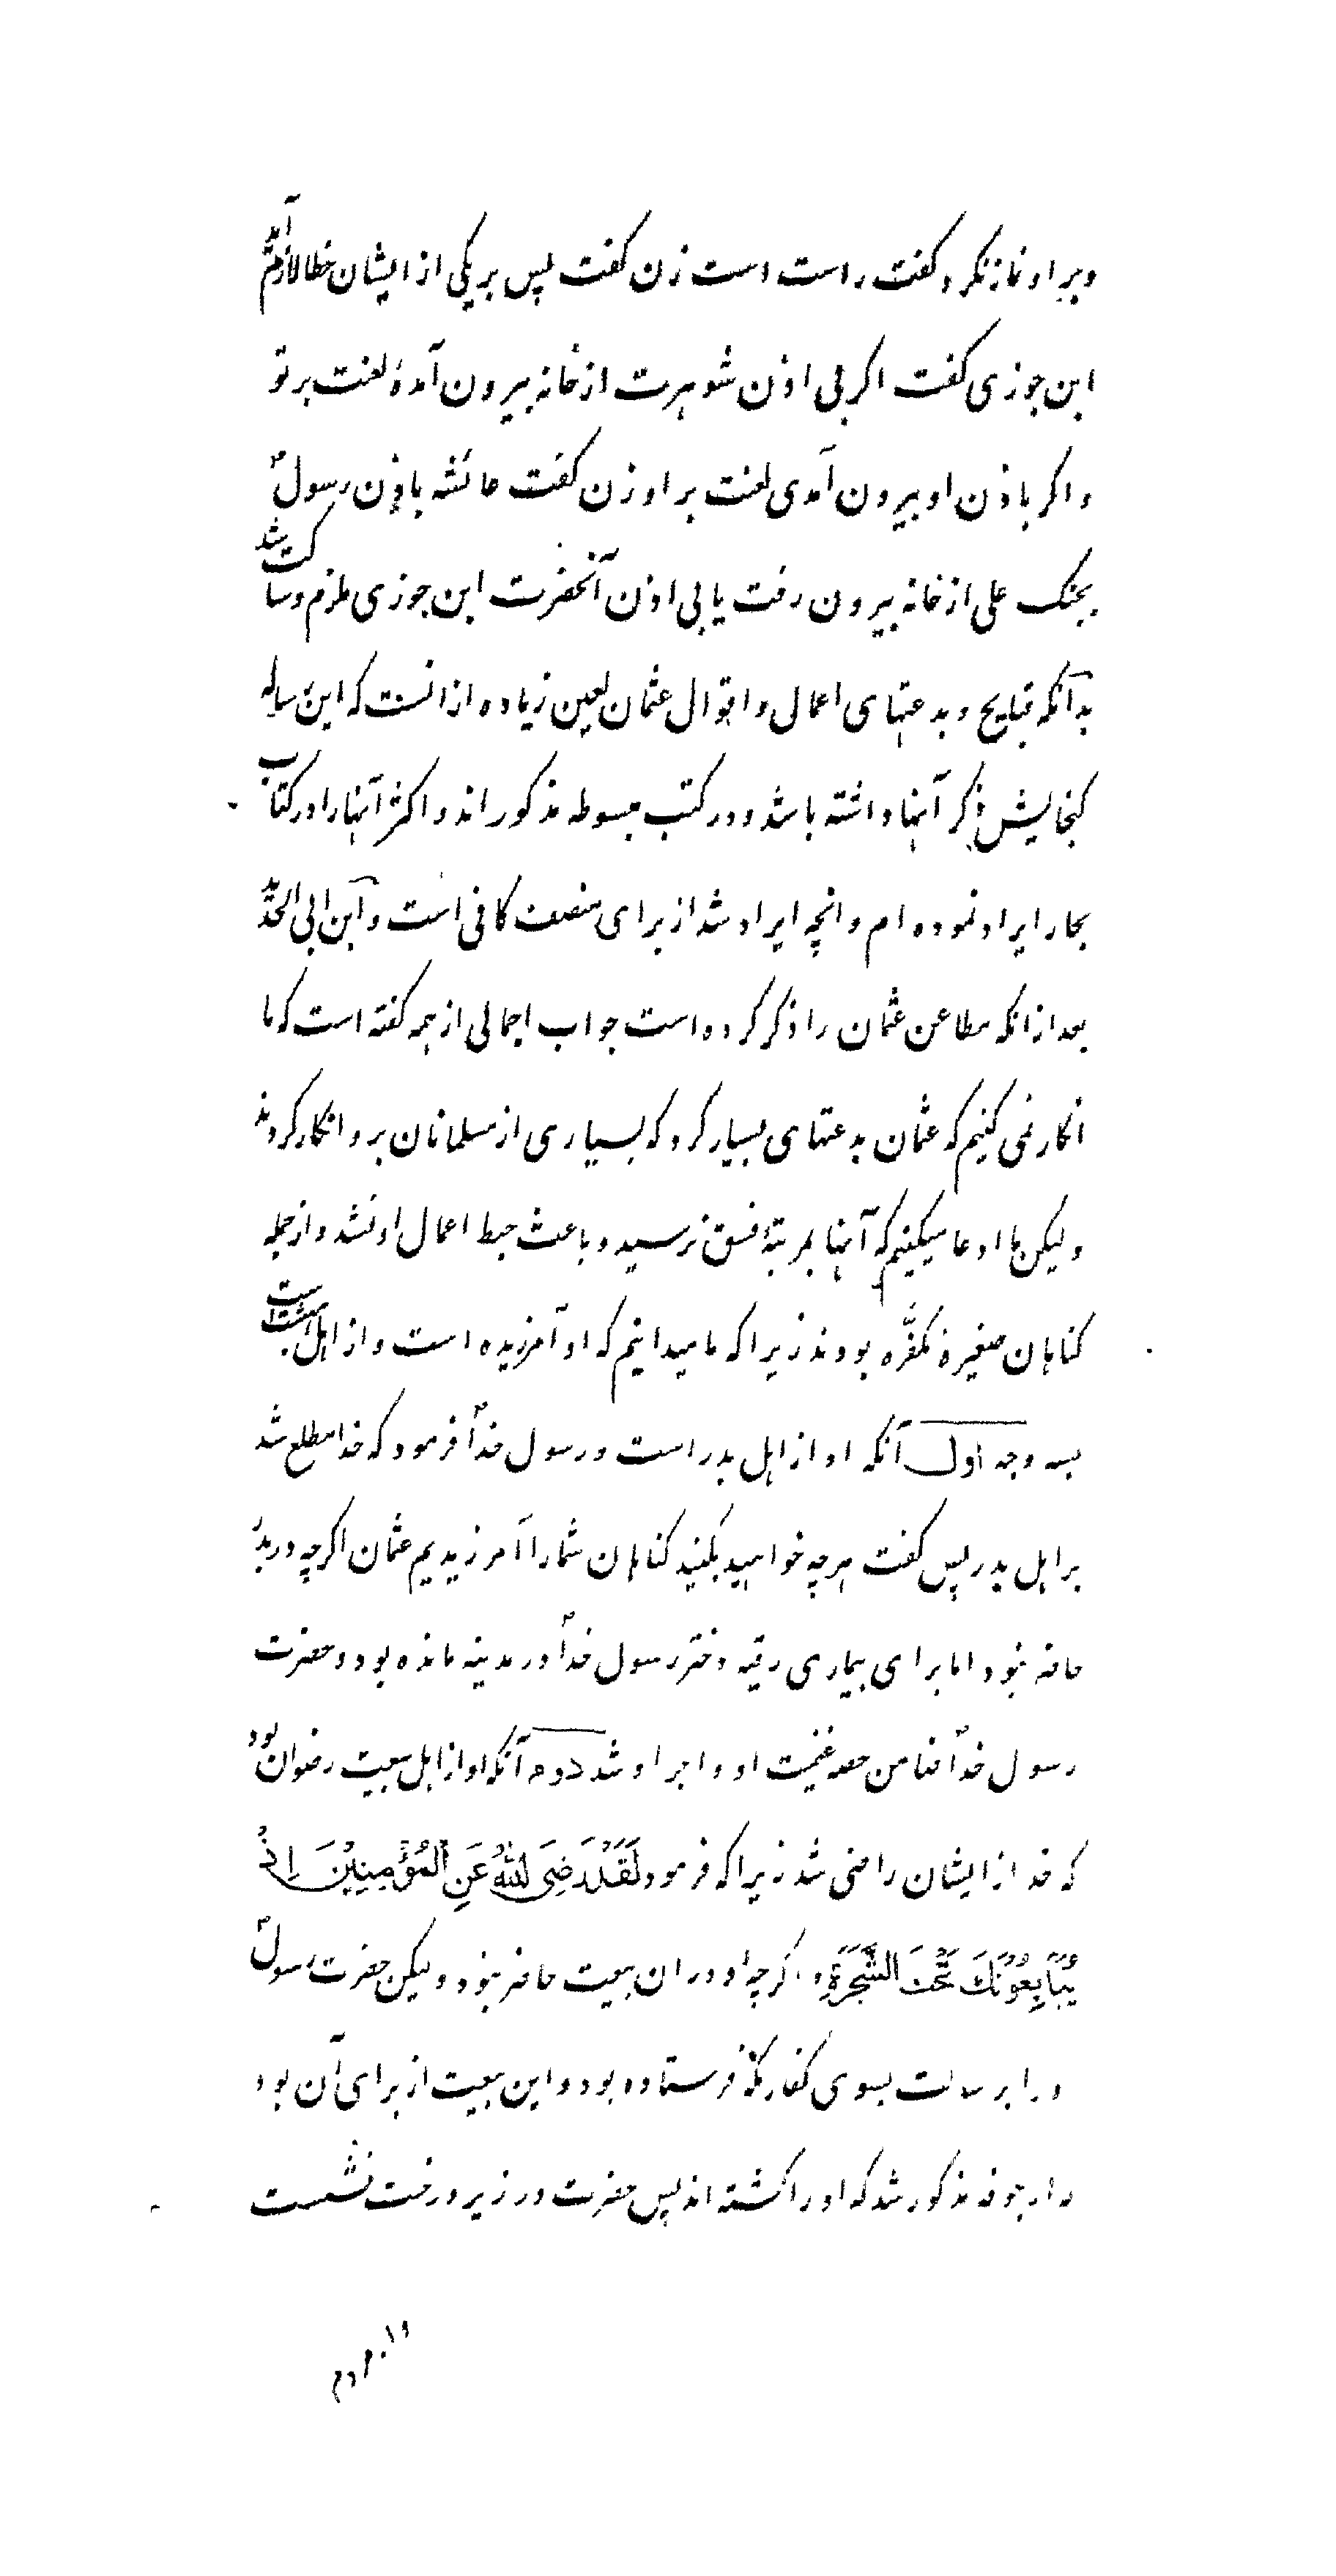 وبر او نماز نکرد کفت راست است زن کفت پس بر یکی از ایشان خطا لازم می آید
ابن جوزی کفت اکر بی اذن شوهرت از خانه بیرون آمدهٔ لعنت بر تو
و اکر باذن او بیرون آمدی لعنت بر او زن کفت عائشه باذن رسول ص
بجنک علی از خانه بیرون رفت یا بی اذن آنحضرت ابن جوزی ملزم و ساکت شد
بدآنکه قبایح و بدعتهای اعمال و اقوال عثمان لعین زیاده از انست که این رساله
کنجایش ذکر آنها داشته باشد و در کتب مبسوطه مذکور اند و اکثر آنها را در کتاب
بحار ایراد نموده ام و انچه ایراد شد از برای منصف کافی است و آبن ابی الحدید
بعد از انکه مطاعن عثمان را ذکر کرده است جواب اجمالی از همه کفته است که ما
انکار نمی کنیم که عثمان بدعتهای بسیار کرد که بسیاری از مسلمانان بر و انکار کردند
ولیکن ما ادعا میکنیم که آنها بمرتبهٔ فسق نرسید و باعث حبط اعمال او نشد و از جمله
کناهان صغیرهٔ مکفَّره بودند زیرا که ما میدانیم که او آمرزیده است و از اهل بهشت است
بسه وجه اول آنکه او از اهل بدر است و رسول خدا ص فرمود که خدا مطلع شد
بر اهل بدر پس کفت هرچه خواهید بکنید کناهان شما را آمرزیدیم عثمان اکرچه در بدر
حاضر نبود اما برای بیماری رقیه دختر رسول خدا ص در مدینه مانده بود و حضرت
رسول خدا ص ضامن حصه غنیمت او و اجر او شد دوم آنکه او از اهل بیعت رضوان بود
که خدا از ایشان راضی شد زیرا که فرمود لَقَدْ رَضِیَ اللّٰهُ عَنِ الْمُؤْمِنِیْنَ اِذْ
یُبَایِعُوْنَکَ تَحْتَ الشَّجَرَةِ و اکرچه او در ان بیعت حاضر نبود ولیکن حضرت رسول ص
ورا برسالت بسوی کفار مکّه فرستاده بود و این بیعت از برای آن بود
که ارجوفه مذکور شد که او را کشته اند پس حضرت در زیر درخت نشست